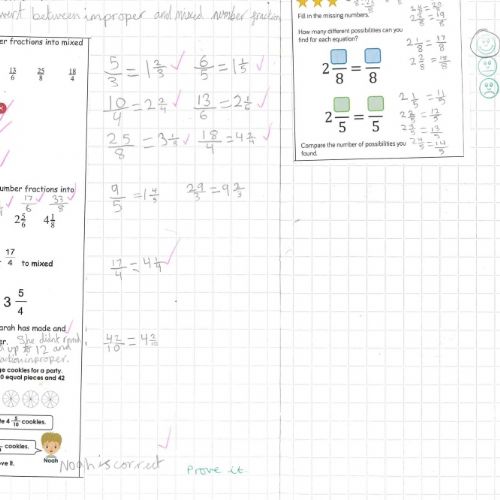 between improper and mixed number fraction
er fractions into mixed
13/6 25/8 18/4
5/3 = 1 2/3 6/5 = 1 1/5
10/4 = 2 2/4 13/6 = 2 1/6
25/8 = 3 1/8 18/4 = 4 2/4
umber fractions into
17/6 33/8
2 5/6 4 1/8
9/5 = 1 4/5 29/3 = 9 2/3
17/4 to mixed
17/4 = 4 1/4
3 5/4
arah has made and
er. She didn't
up 12 and
improper.
42/10 = 4 2/10
ge cookies for a party.
0 equal pieces and 42
te 4 5/10 cookies.
cookies.
ove it.
Noah
Noah is correct
Prove it
Fill in the missing numbers.
How many different possibilities can you
find for each equation?
2 /8 = /8
2 /5 = /5
Compare the number of possibilities you
found.
2 1/8 = 17/8
2 2/8 = 18/8
2 1/5 = 11/5
2 2/5 = 12/5
2 3/5 = 13/5
2 4/5 = 14/5